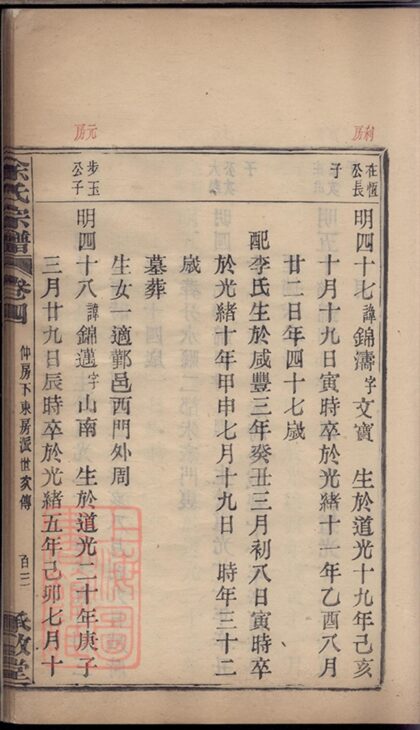 利房
在恆公長子
明四十七 諱錦濤字文寶 生於道光十九年己亥
十月十九日寅時卒於光緒十一年乙酉八月
廿二日年四十七歲
配李氏生於咸豐三年癸丑三月初八日寅時卒
於光緒十年甲申七月十九日 時年三十二
歲
墓葬
生女一適鄞邑西門外周
元房
步玉公子
明四十八 諱錦邁字山南 生於道光二十年庚子
三月廿九日辰時卒於光緒五年己卯七月十
氏宗譜 卷四
仲房下東房派世家傳
百三
敬堂